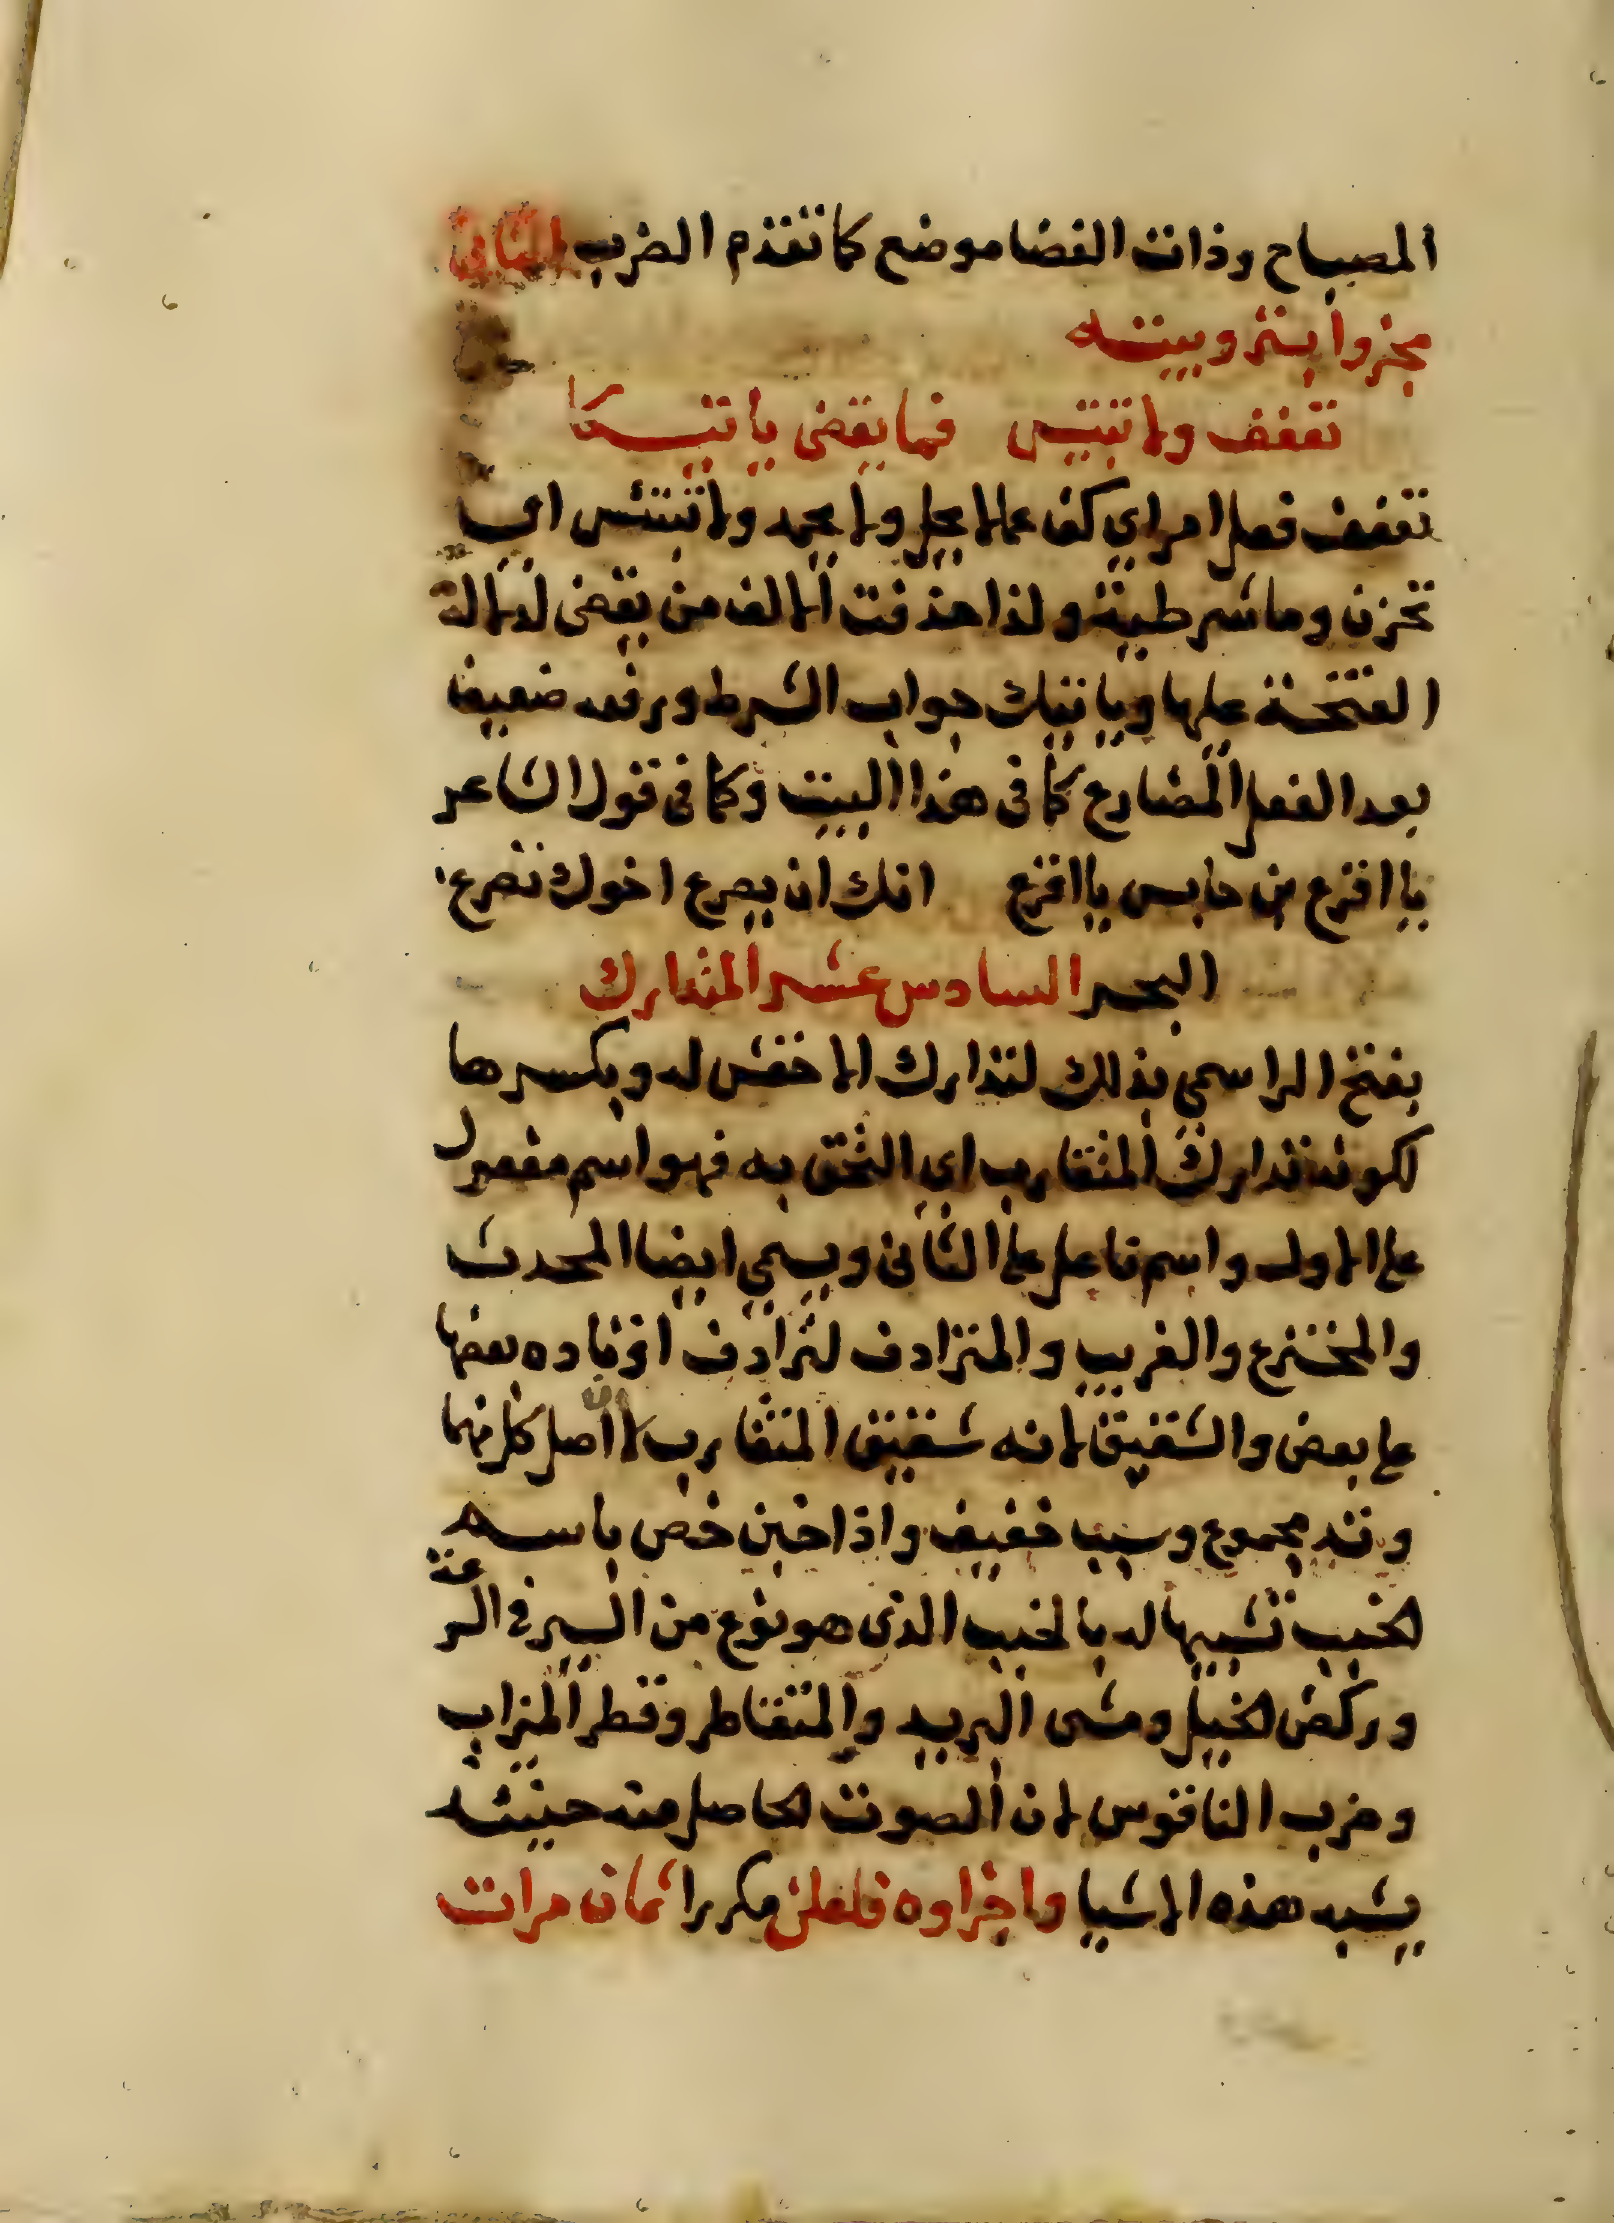 المصباح وذات الغضا موضع كما تقدم الضرب الثاني
مجزوا ابتر وبيته
تعفف ولا تبتئس فما يقض ياتيكا
تعفف فعل امر اي كف عما لا يحل ولا يحمد ولا تبتئس اي
تحزن وما شرطية ولذا حذفت الالف من يقض لدلالة
الفتحة عليها وياتيك جواب الشرط ورفعه ضعيف
بعد الفعل المضارع كما في هذا البيت وكما في قول الشاعر
يا اقرع بن حابس يا اقرع انك ان يصرع اخوك تصرع
البحر السادس عشر المتدارك
بفتح الرا سمي بذلك لتدارك الاخفش له وبكسرها
لكونه تدارك المتقارب اي التحق به فهو اسم مفعول
على الاول واسم فاعل على الثاني ويسمي ايضا المحدث
والمخترع والغريب والمترادف لترادف اوتاده بعضها
على بعض والشقيق لانه شقيق المتقارب لان اصل كل منهما
وتد مجموع وسبب خفيف واذا خبن خص باسم
الخبب تشبيها له بالخبب الذي هو نوع من السير في السرعة
وركض الخيل ومشى البريد والمتقاطر وقطر الميزاب
وضرب الناقوس لان الصوت الحاصل منه حينئذ
يشبه هذه الاشيا واجزاوه فاعلن مكررا ثمان مرات